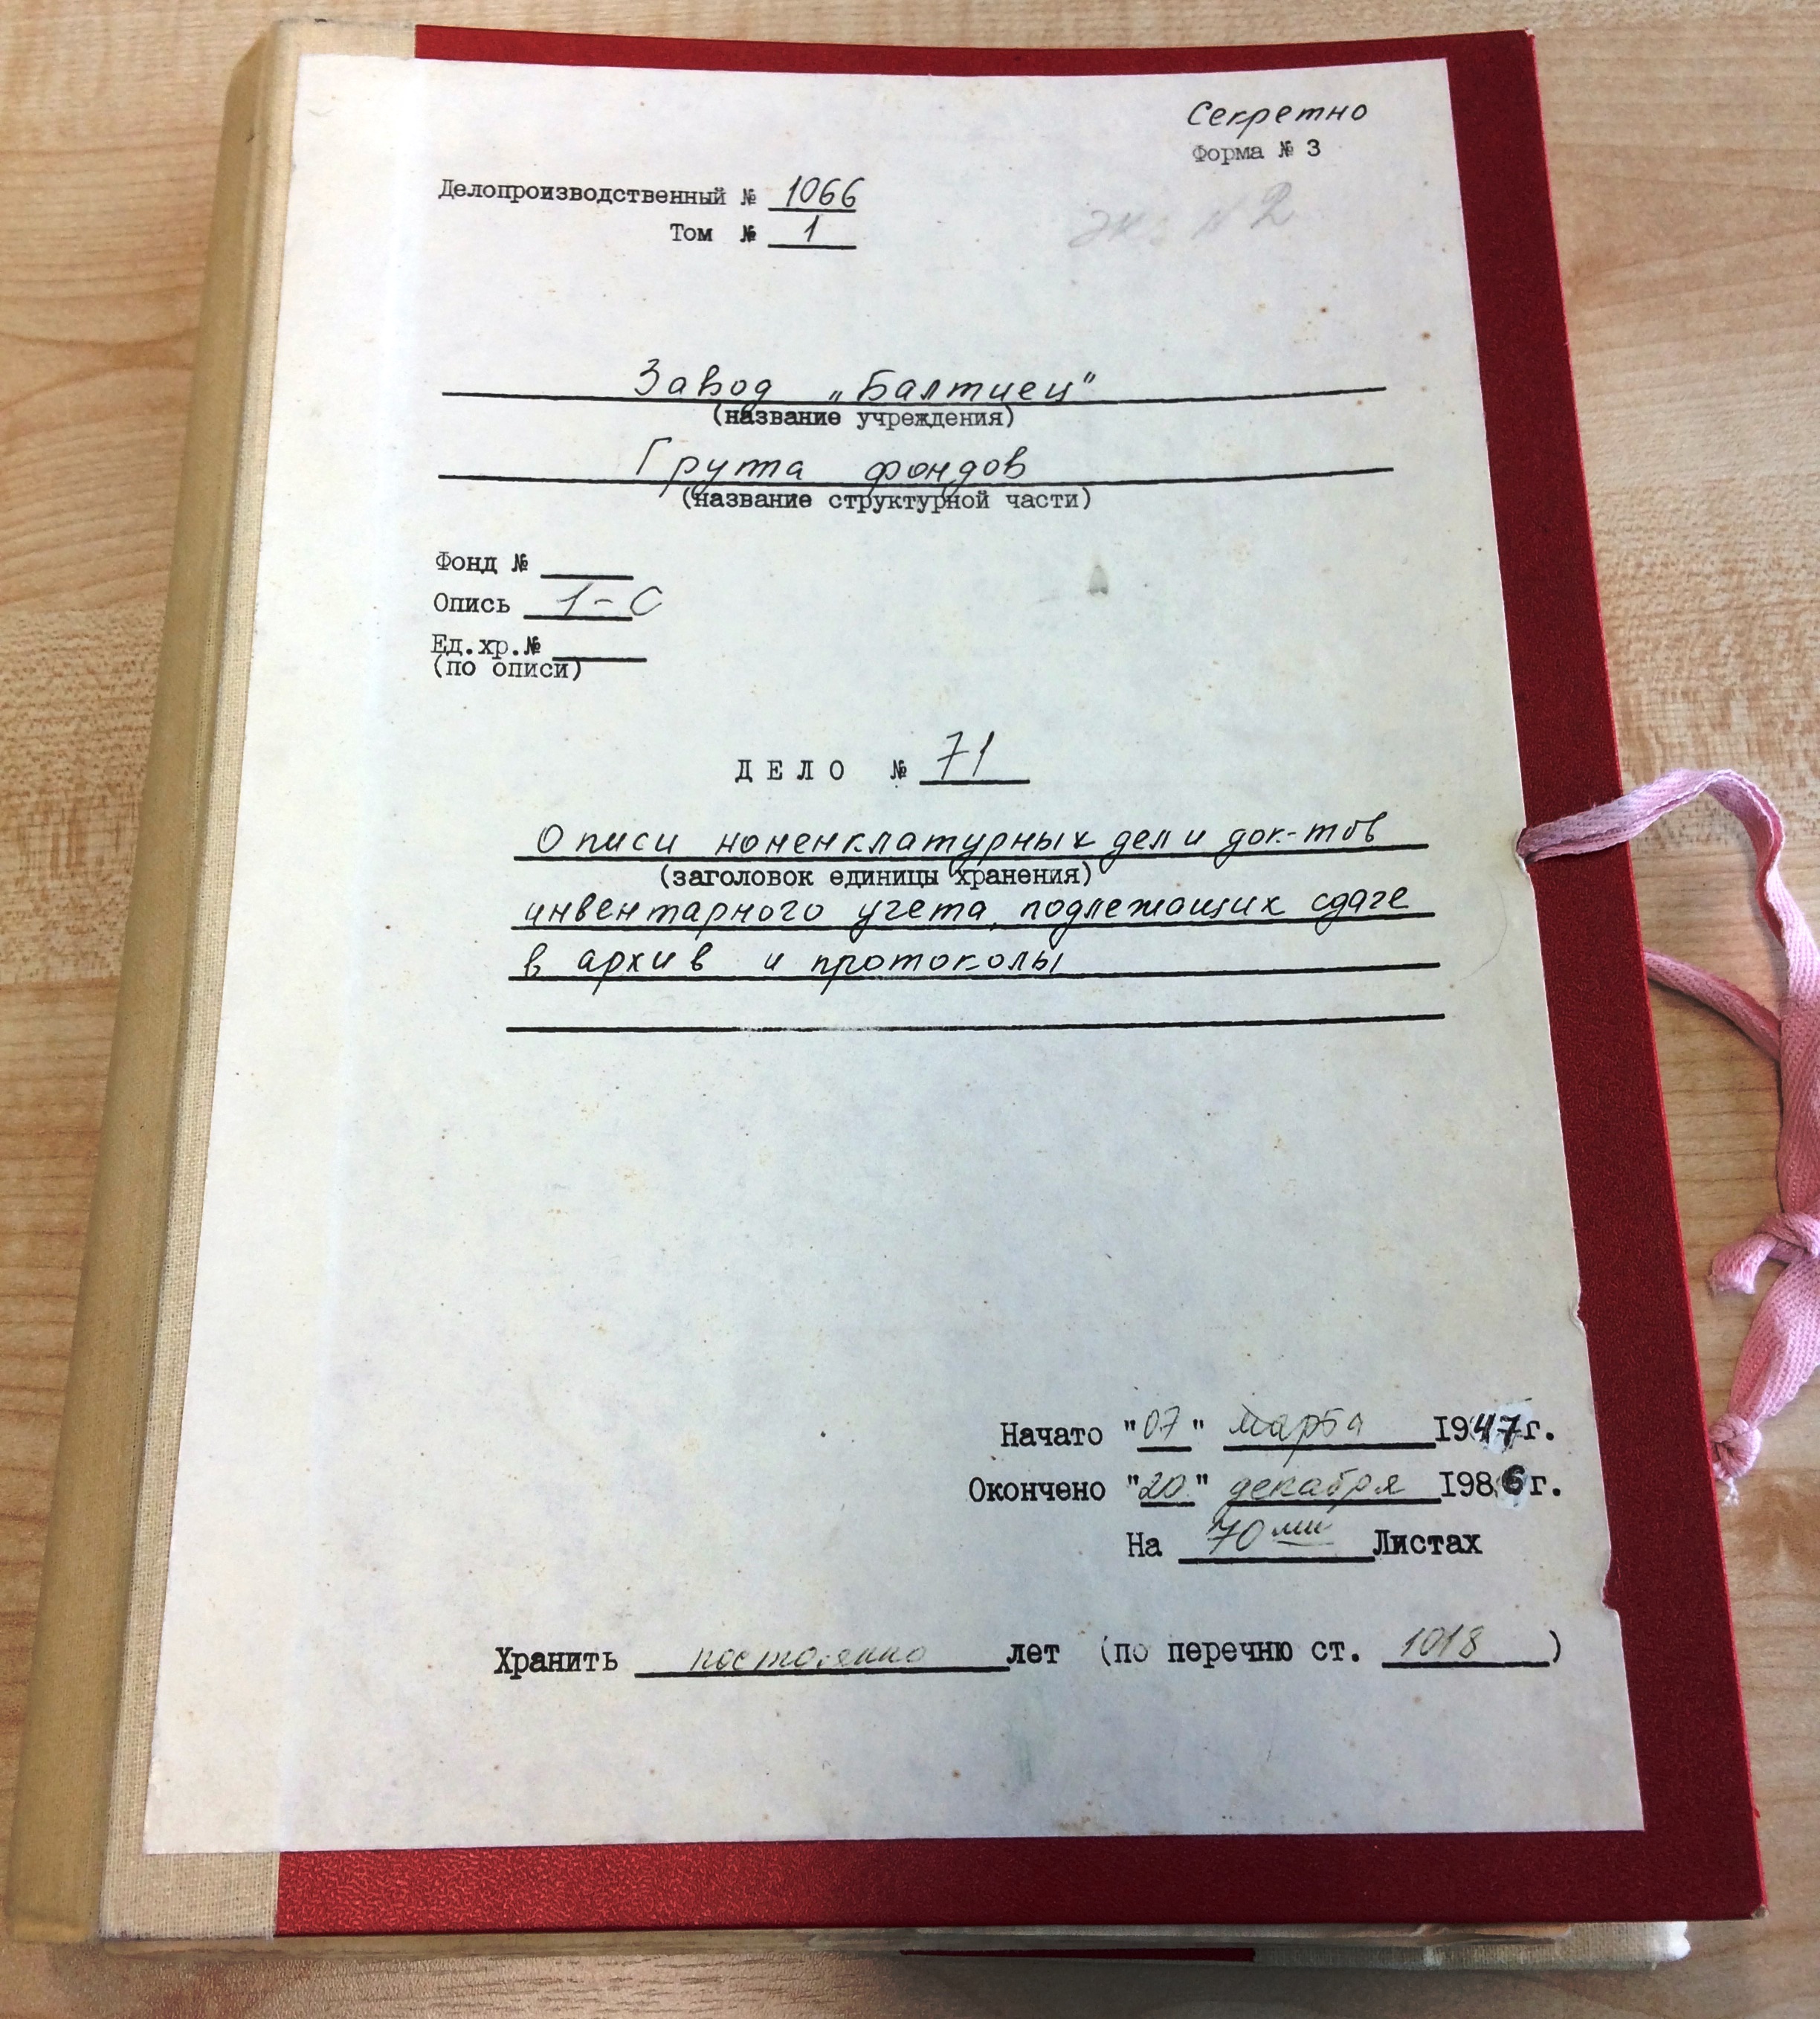 Секретно
Форма № 3
Делопроизводственный № 1066
Том № 1
экз № 2
Завод „Балтиец"
(название учреждения)
Группа фондов
(название структурной части)
Фонд №
Опись 1-С
Ед.хр.№
(по описи)
ДЕЛО № 71
Описи номенклатурных дел и док-тов
(заголовок единицы хранения)
инвентарного учета, подлежащих сдаче
в архив и протоколы
Начато "07" марта 1947г.
Окончено "20" декабря 1986г.
На 70ми Листах
Хранить постоянно лет (по перечню ст. 1018)